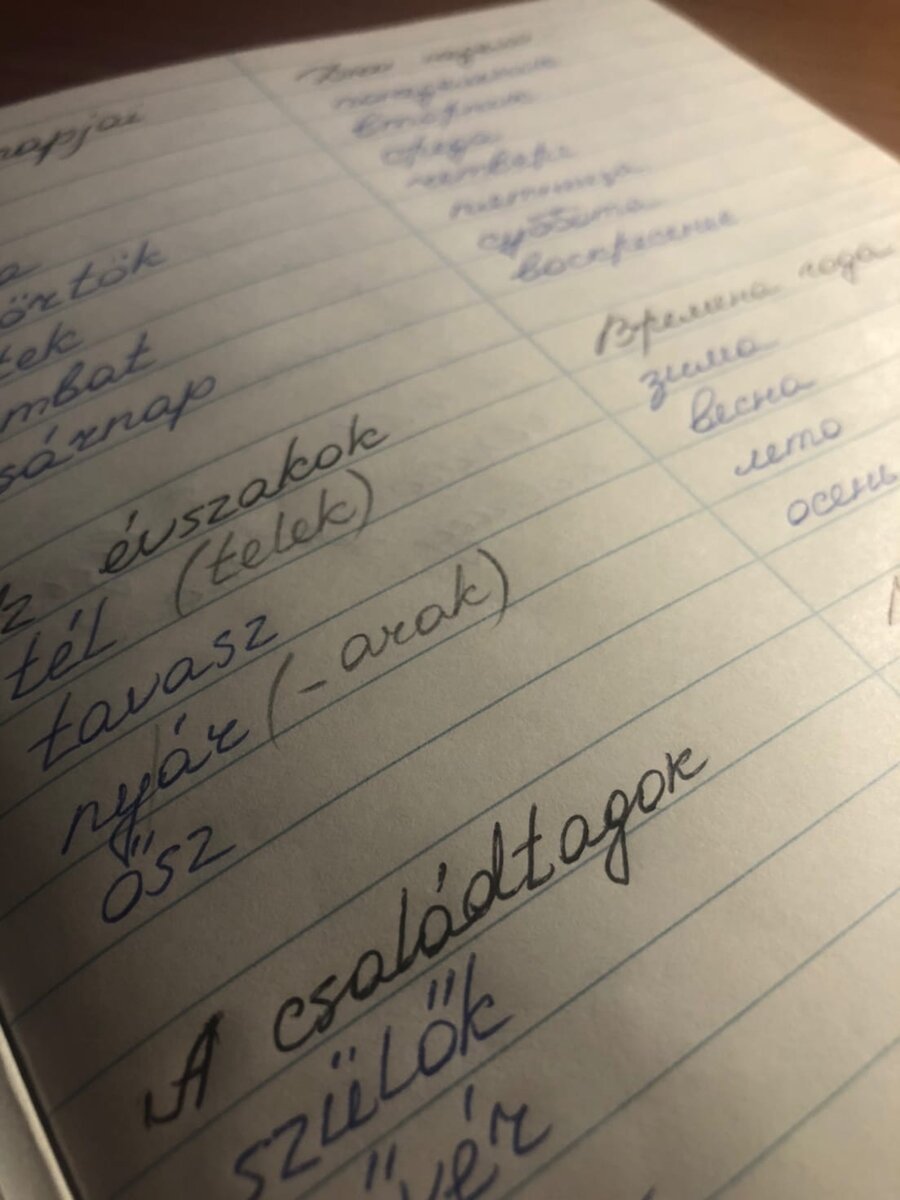 napjai
örtök
tek
mbat
sárnap
z évszakok
tél (telek)
tavasz
nyár (-arak)
ősz
A családtagok
szülők
ővér
Дни недели
понедельник
вторник
среда
четверг
пятница
суббота
воскресенье
Времена года
зима
весна
лето
осень